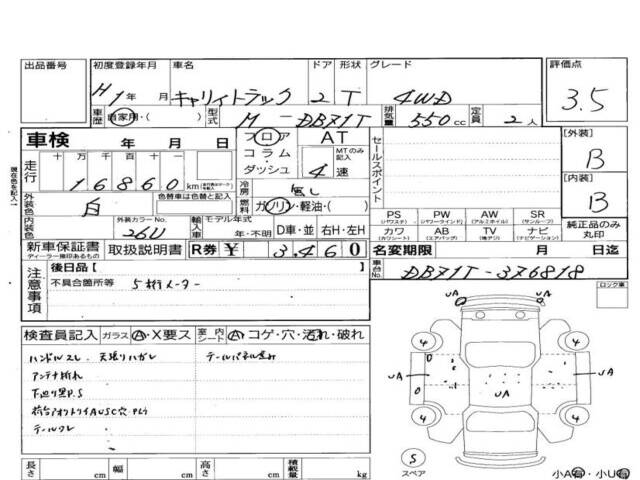 出品番号 初度登録年月 車名 ドア 形状 グレード 評価点
H1年 月 キャリイトラック 2 T 4WD 3.5
車歴 自家用・( ) 型式 M-DB71T 排気量 550cc 定員 2人
車検 年 月 日 フロア コラム ダッシュ AT MTのみ記入 4速 セールスポイント [外装] B
現在色を記入
走行 十万千百十 16860km 冷房 無し [内装] B
外装色 白 色替車は色替と記入 燃料 ガソリン・軽油・( )
内装色 外装カラーNo. 26U 輸入車 モデル年式 年・不明 D車・並 右H・左H
PS (パワステ) PW (パワーウインド) AW (アルミホイル) SR (サンルーフ)
カワ (カワシート) AB (エアバッグ) TV (地デジ) ナビ (ナビゲーション) 純正品のみ丸印
新車保証書 ディーラー捺印あるもの 取扱説明書 R券 ¥ 3,460 名変期限 月 日迄
注意事項 後日品[ ] 車台No. DB71T-376818
不具合箇所等 5桁メーター
ロック車
検査員記入 ガラス A・X要ス 室内シート A・コゲ・穴・汚れ・破れ
ハンドルスレ 天張りハガレ テールパネル歪み
アンテナ折れ
下廻り黒P.S
テールワレ
UA UA UA UA
4 4 4 4
S
スペア
小A有・小U有
長さ cm 幅 cm 高さ cm 積載量 kg